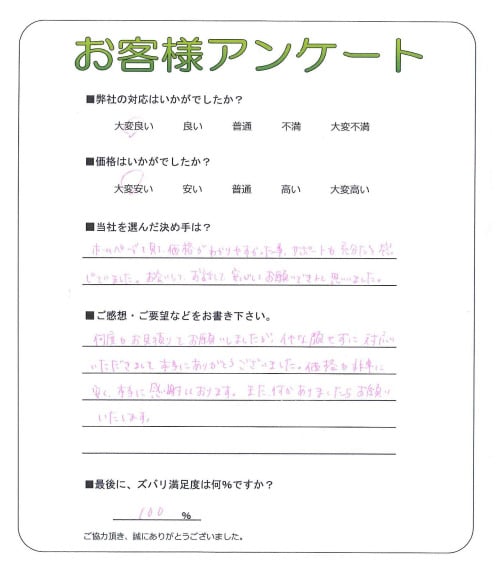 お客様アンケート
■弊社の対応はいかがでしたか？
大変良い 良い 普通 不満 大変不満
■価格はいかがでしたか？
大変安い 安い 普通 高い 大変高い
■当社を選んだ決め手は？
ホームページを見て、価格がわかりやすかった事、サポートも充分だと感
じていました。お会いして、お話して、安心してお願いできると思いました。
■ご感想・ご要望などをお書き下さい。
何度もお見積りをお願いしましたが、イヤな顔せずに対応
いただきまして本当にありがとうございました。価格も非常に
安く、本当に感謝しております。また何かありましたらお願い
いたします。
■最後に、ズバリ満足度は何％ですか？
100 %
ご協力頂き、誠にありがとうございました。